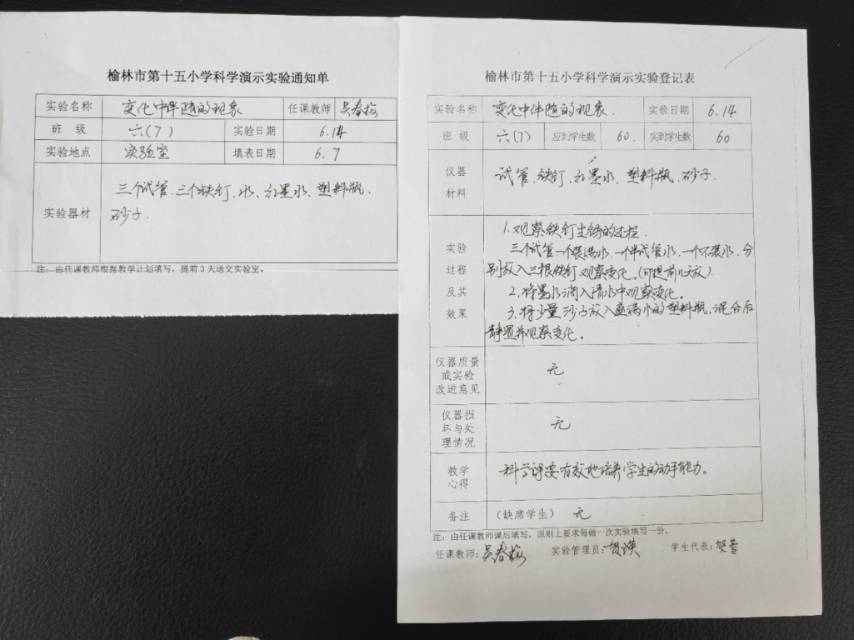 榆林市第十五小学科学演示实验通知单
实验名称 变化中伴随的现象 任课教师 吴春梅
班 级 六(7) 实验日期 6.14
实验地点 实验室 填表日期 6.7
实验器材 三个试管、三个铁钉、水、红墨水、塑料瓶、
砂子.
注：由任课教师根据教学计划填写，提前3天送交实验室。
榆林市第十五小学科学演示实验登记表
实验名称 变化中伴随的现象. 实验日期 6.14
班 级 六(7) 应到学生数 60. 实到学生数 60
仪器
材料
试管、铁钉、红墨水、塑料瓶、砂子.
实验
过程
及其
效果
1.观察铁钉生锈的过程.
三个试管一个装满水，一个半试管水，一个不装水，分
别放入三根铁钉观察变化。(可提前几天放)
2.将墨水滴入清水中观察变化。
3.将少量沙子放入盛满水的塑料瓶，混合后
静置并观察变化。
仪器质量
或实验
改进意见
无
仪器损
坏与处
理情况
无
教学
心得
科学课要有效地培养学生的动手能力。
备注 (缺席学生) 无
注：由任课教师课后填写，原则上要求每做一次实验填写一份。
任课教师：吴春梅 实验管理员：贺瑛 学生代表：